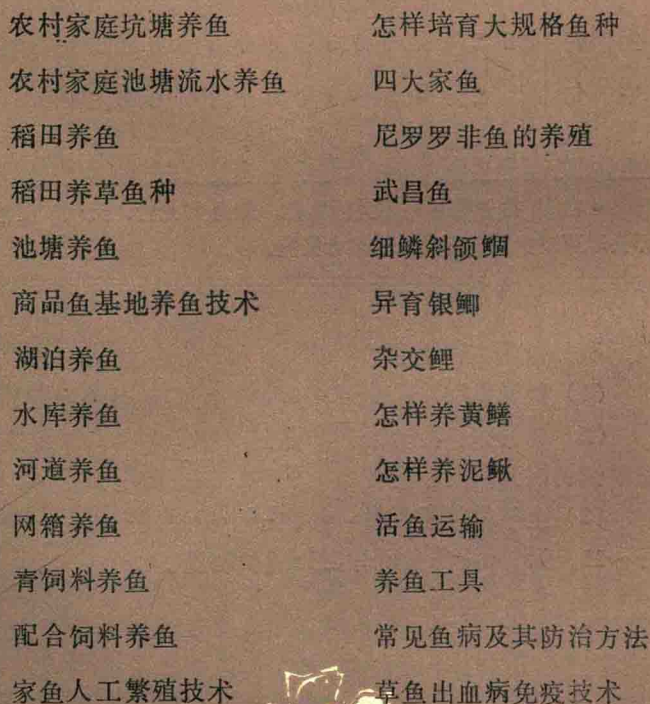 农村家庭坑塘养鱼
农村家庭池塘流水养鱼
稻田养鱼
稻田养草鱼种
池塘养鱼
商品鱼基地养鱼技术
湖泊养鱼
水库养鱼
河道养鱼
网箱养鱼
青饲料养鱼
配合饲料养鱼
家鱼人工繁殖技术
怎样培育大规格鱼种
四大家鱼
尼罗罗非鱼的养殖
武昌鱼
细鳞斜颌鲴
异育银鲫
杂交鲤
怎样养黄鳝
怎样养泥鳅
活鱼运输
养鱼工具
常见鱼病及其防治方法
草鱼出血病免疫技术